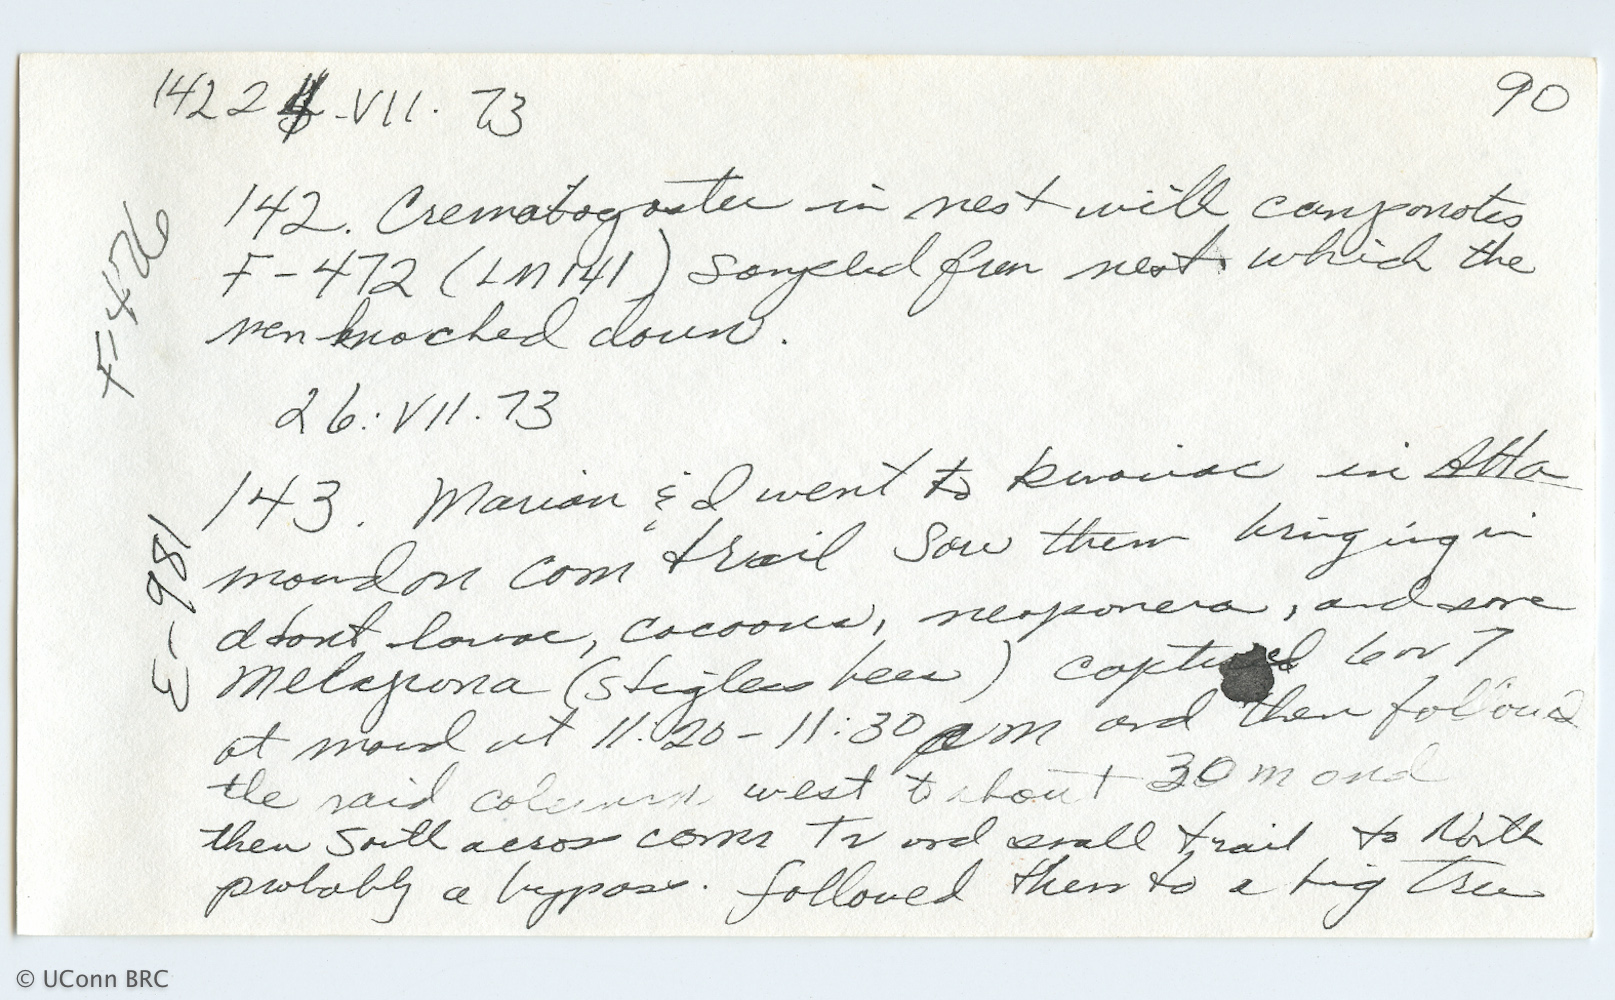 142 24-VII. 73
90
142. Crematogaster in nest with camponotus
F-472 (LM141) sampled from nest which the
men knocked down.
F-476
26:VII.73
143. Marian & I went to bivouac in Atta
mound on Com trail Saw them bringing in
adont larvae, cocoons, neoponera, and some
Melapona (stigless bees) captured 6 or 7
at mound at 11:20-11:30 pm and then followed
the raid column west to about 30 m and
then South across comm Tr and small trail to North
probably a bypass. followed them to a big Tree
E-981
© UConn BRC